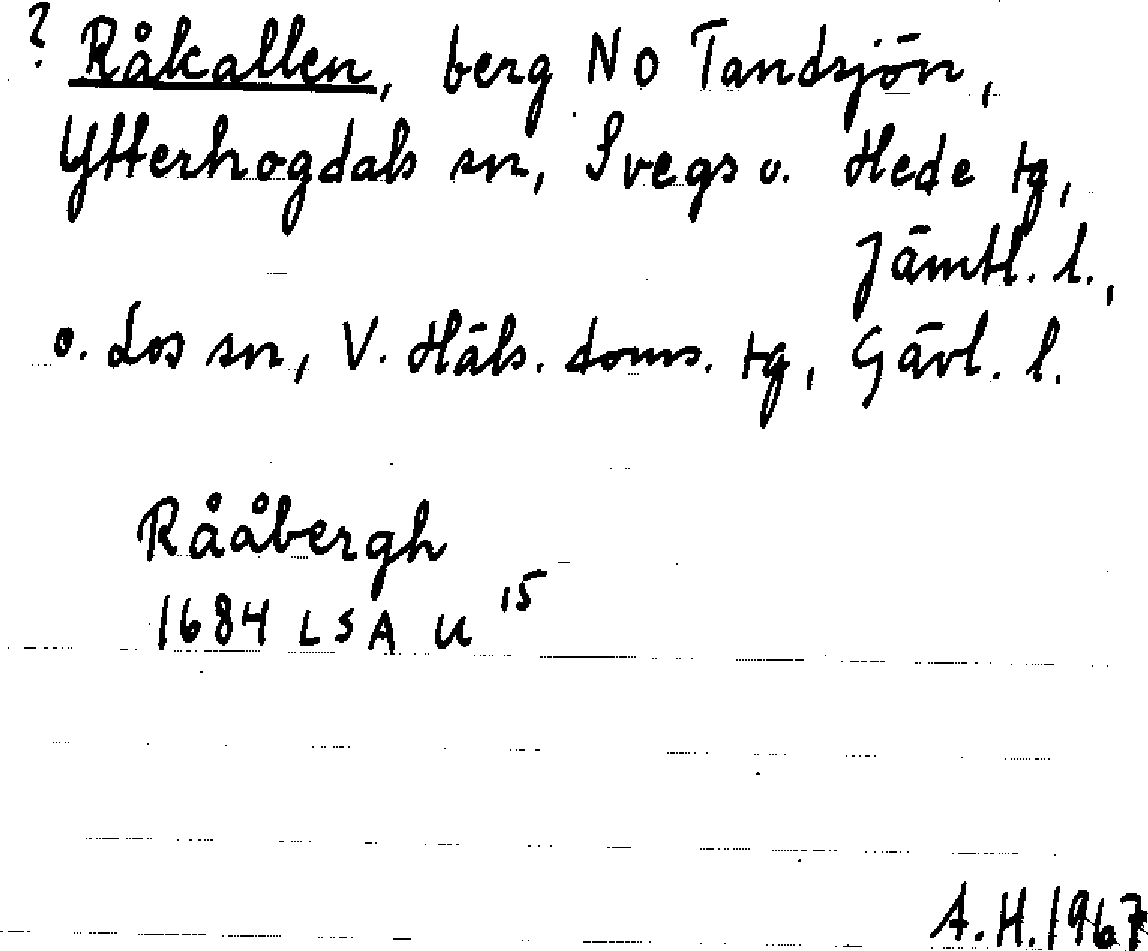 ? Råkallen, berg NO Tandsjön,
Ytterhogdals sn, Svegs o. Hede tg,
Jämtl. l.,
o. Los sn, V. Häls. doms. tg, Gävl. l.
Rååbergh
1684 LSA U 15
A.H. 1967